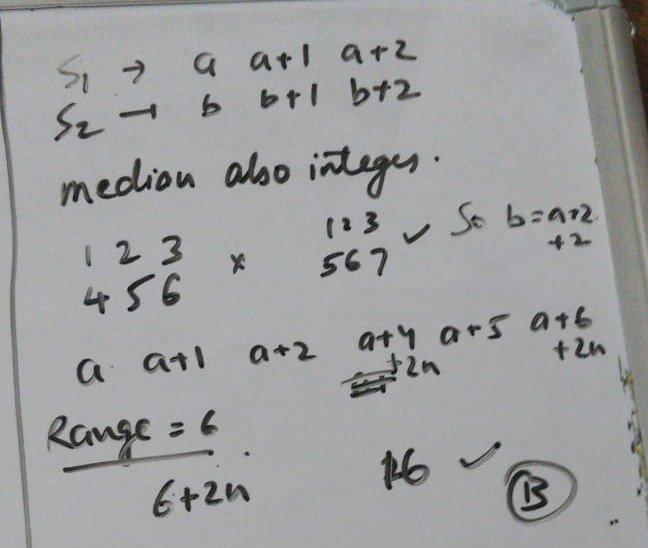 S1 → a a+1 a+2
S2 → b b+1 b+2
median also integer.
1 2 3 × 1 2 3 ✓ So b=a+2
4 5 6 5 6 7 +2
a a+1 a+2 a+4 a+5 a+6
+2n +2n
Range = 6
6+2n
16 ✓ B